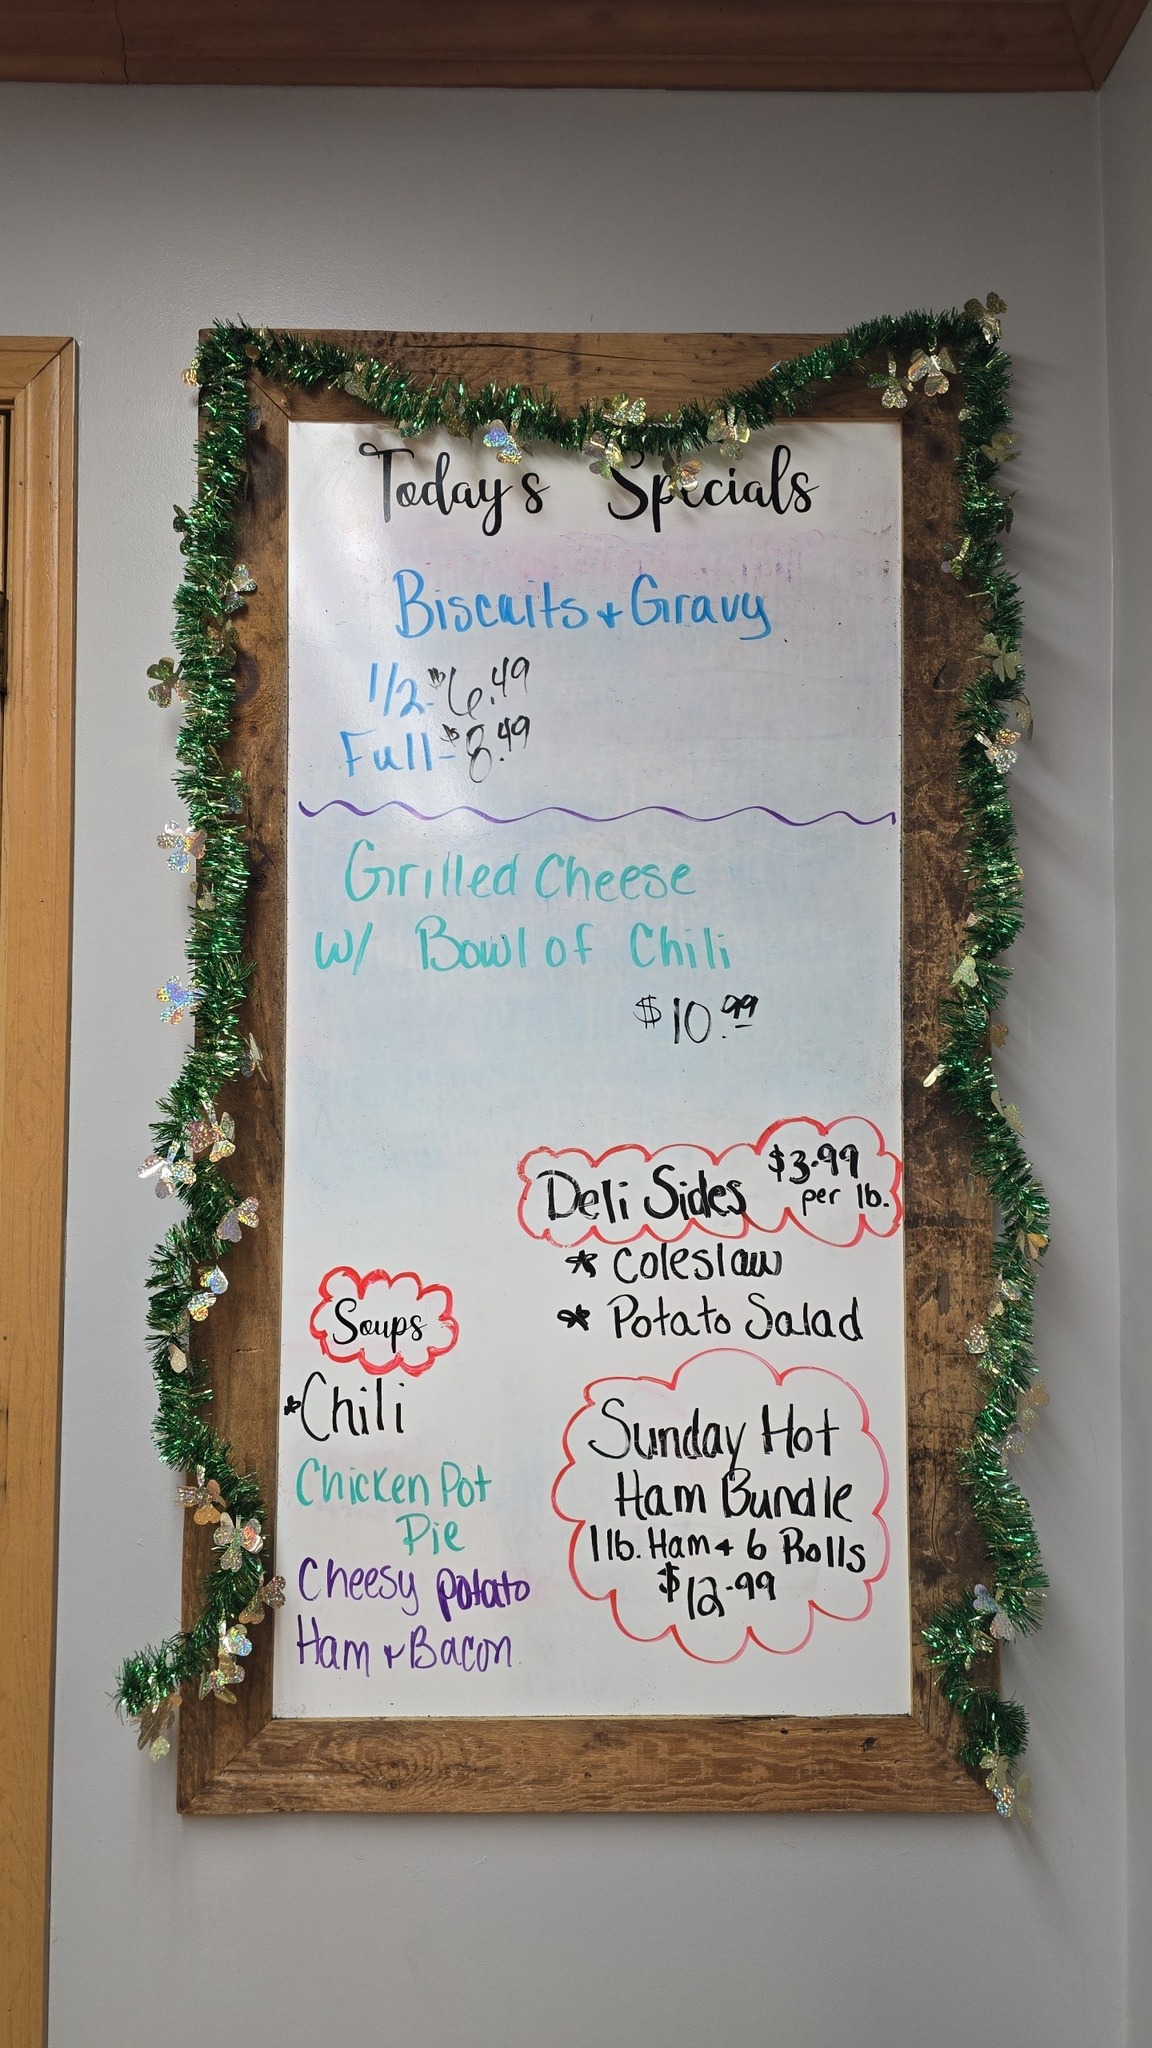 Today's Specials
Biscuits + Gravy
1/2-$6.49
Full-$8.49
Grilled Cheese
w/ Bowl of Chili
$10.99
Deli Sides $3.99
per lb.
* Coleslaw
* Potato Salad
Soups
*Chili
Chicken Pot
Pie
Cheesy potato
Ham + Bacon
Sunday Hot
Ham Bundle
1 lb. Ham + 6 Rolls
$12.99